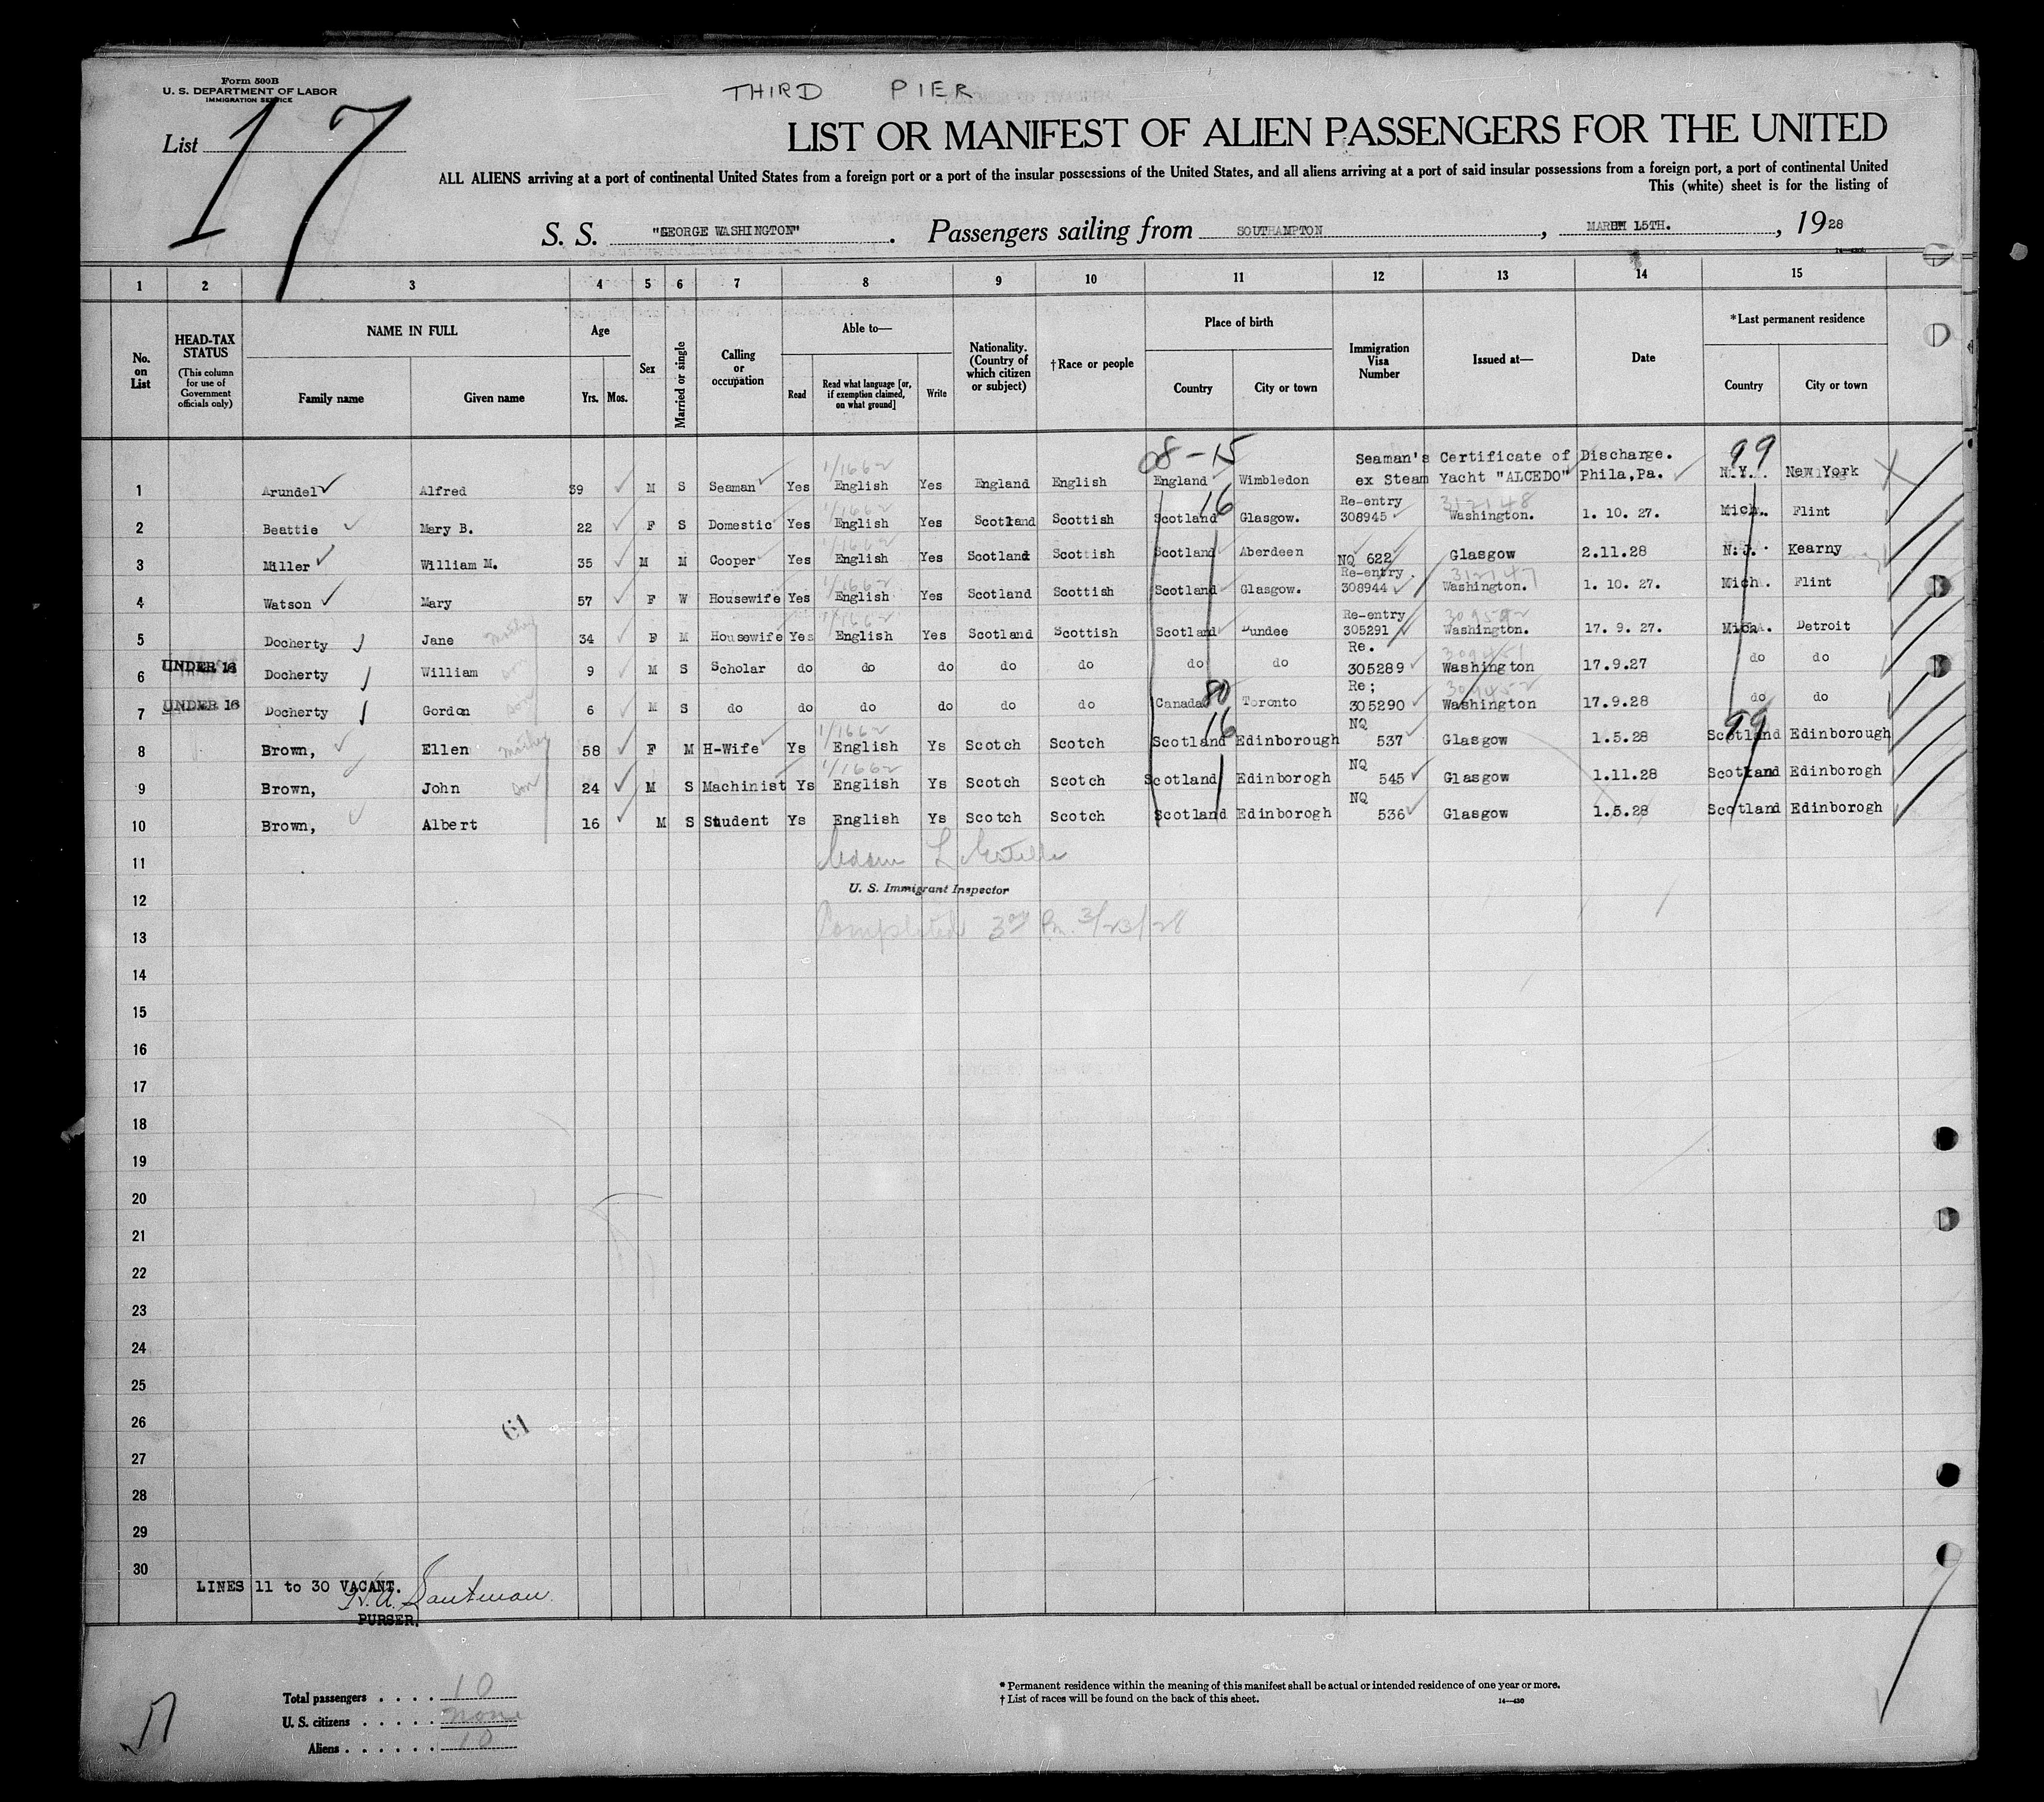 Form 500B
U. S. DEPARTMENT OF LABOR
IMMIGRATION SERVICE
THIRD PIER
List 17
LIST OR MANIFEST OF ALIEN PASSENGERS FOR THE UNITED
ALL ALIENS arriving at a port of continental United States from a foreign port or a port of the insular possessions of the United States, and all aliens arriving at a port of said insular possessions from a foreign port, a port of continental United
This (white) sheet is for the listing of
S. S. "GEORGE WASHINGTON". Passengers sailing from SOUTHAMPTON, MARCH 15TH., 1928
1 2 3 4 5 6 7 8 9 10 11 12 13 14 15
No. on List
HEAD-TAX STATUS (This column for use of Government officials only)
NAME IN FULL Family name Given name
Age Yrs. Mos.
Sex
Married or single
Calling or occupation
Able to— Read Read what language [or, if exemption claimed, on what ground] Write
Nationality. (Country of which citizen or subject)
†Race or people
Place of birth Country City or town
Immigration Visa Number
Issued at—
Date
*Last permanent residence Country City or town
08-15 Seaman's Certificate of Discharge. 99
1 Arundel Alfred 39 M S Seaman Yes English Yes England English England Wimbledon ex Steam Yacht "ALCEDO" Phila,Pa. N.Y. New York
16 Re-entry 312148
2 Beattie Mary B. 22 F S Domestic Yes English Yes Scotland Scottish Scotland Glasgow. 308945 Washington. 1. 10. 27. Mich. Flint
3 Miller William M. 35 M M Cooper Yes English Yes Scotland Scottish Scotland Aberdeen NQ 622 Glasgow 2.11.28 N.J. Kearny
Re-entry 312147
4 Watson Mary 57 F W Housewife Yes English Yes Scotland Scottish Scotland Glasgow. 308944 Washington. 1. 10. 27. Mich. Flint
Re-entry
5 Docherty Jane Mother 34 F M Housewife Yes English Yes Scotland Scottish Scotland Dundee 305291 Washington. 17. 9. 27. Mich. Detroit
Re. 309451
6 UNDER 16 Docherty William Son 9 M S Scholar do do do do do do do 305289 Washington 17.9.27 do do
Re; 309452
7 UNDER 16 Docherty Gordon Son 6 M S do do do do do do Canada 80 Toronto 305290 Washington 17.9.28 do do
16 NQ 99
8 Brown, Ellen Mother 58 F M H-Wife Ys English Ys Scotch Scotch Scotland Edinborough 537 Glasgow 1.5.28 Scotland Edinborough
NQ
9 Brown, John Son 24 M S Machinist Ys English Ys Scotch Scotch Scotland Edinborogh 545 Glasgow 1.11.28 Scotland Edinborogh
NQ
10 Brown, Albert 16 M S Student Ys English Ys Scotch Scotch Scotland Edinborogh 536 Glasgow 1.5.28 Scotland Edinborogh
11
U. S. Immigrant Inspector
12
Completed 3/23/28
13
14
15
16
17
18
19
20
21
22
23
24
25
26
61
27
28
29
30
LINES 11 to 30 VACANT.
PURSER.
Total passengers . . . . 10
U. S. citizens . . . . . none
Aliens . . . . . . 10
17
* Permanent residence within the meaning of this manifest shall be actual or intended residence of one year or more.
† List of races will be found on the back of this sheet. 14—430